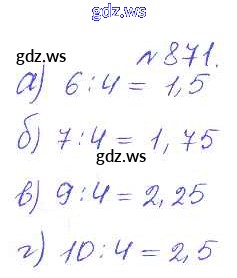 gdz.ws
№871.
gdz.ws
а) 6:4 = 1,5
gdz.ws
б) 7:4 = 1,75
в) 9:4 = 2,25
г) 10:4 = 2,5
gdz.ws